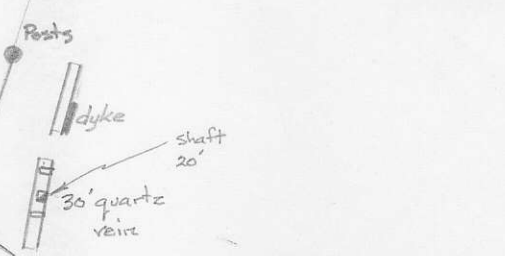 Posts
dyke
shaft
20'
30' quartz
vein